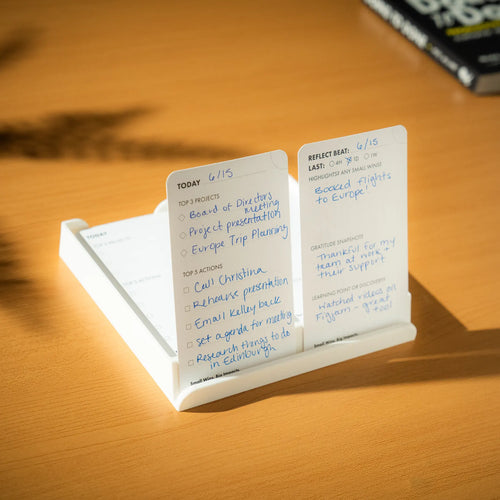 TODAY 6/15
TOP 3 PROJECTS
Board of Directors
Meeting
Project presentation
Europe Trip Planning
TOP 5 ACTIONS
Call Christina
Rehearse presentation
Email Kelley back
set agenda for meeting
Research things to do
in Edinburgh
Small Wins. Big Impacts.
REFLECT BEAT: 6/15
LAST: 4H 1D 1W
HIGHLIGHTS (ANY SMALL WINS)
Booked flights
to Europe!
GRATITUDE SNAPSHOTS
Thankful for my
team at work +
their support
LEARNING POINT OR DISCOVERY
Watched videos on
Figjam - great
tool
TODAY
TOP 3 PROJECTS
TOP 5 ACTIONS